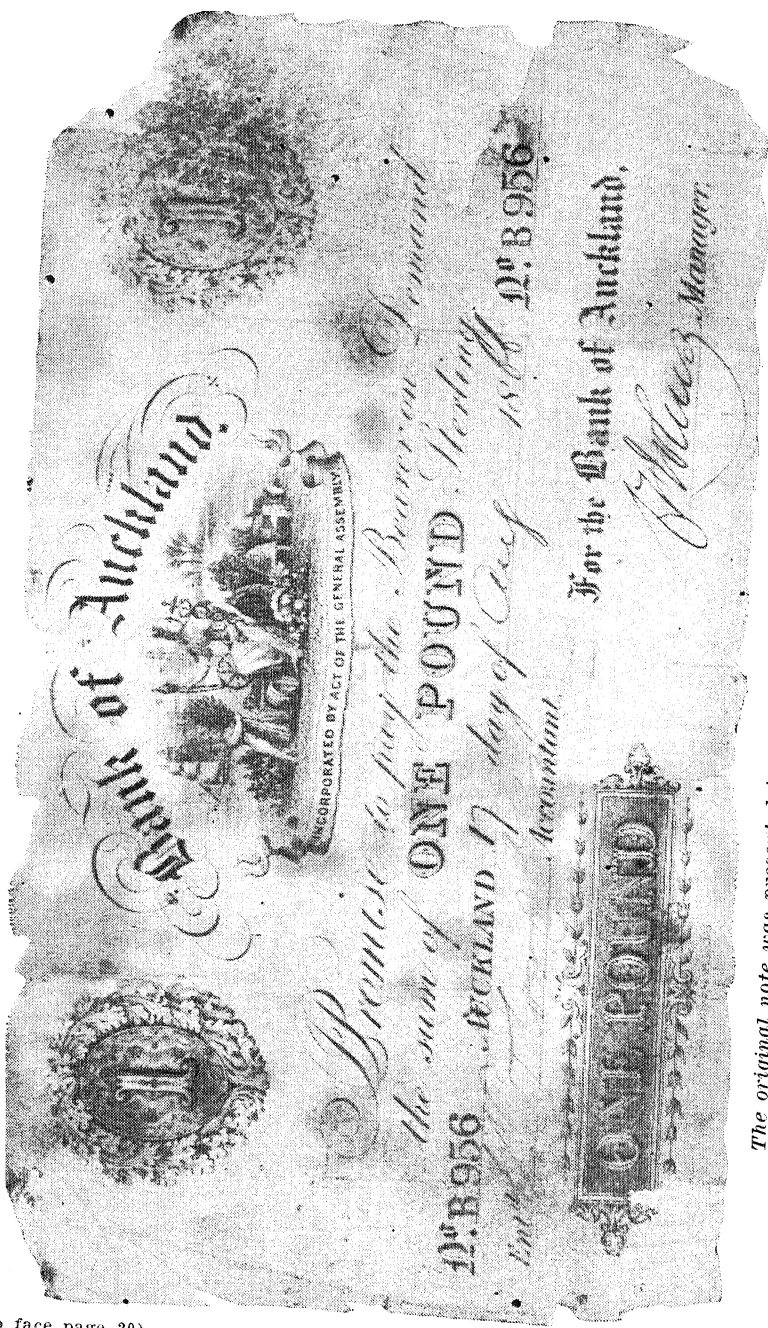 Bank of Auckland.
I I
INCORPORATED BY ACT OF THE GENERAL ASSEMBLY
Promise to pay the Bearer on Demand
the sum of ONE POUND Sterling
No. B 956 AUCKLAND 17 day of Aug 1866 No. B 956
Entd Accountant.
For the Bank of Auckland,
Manager.
ONE POUND
The original note was
face page 20)